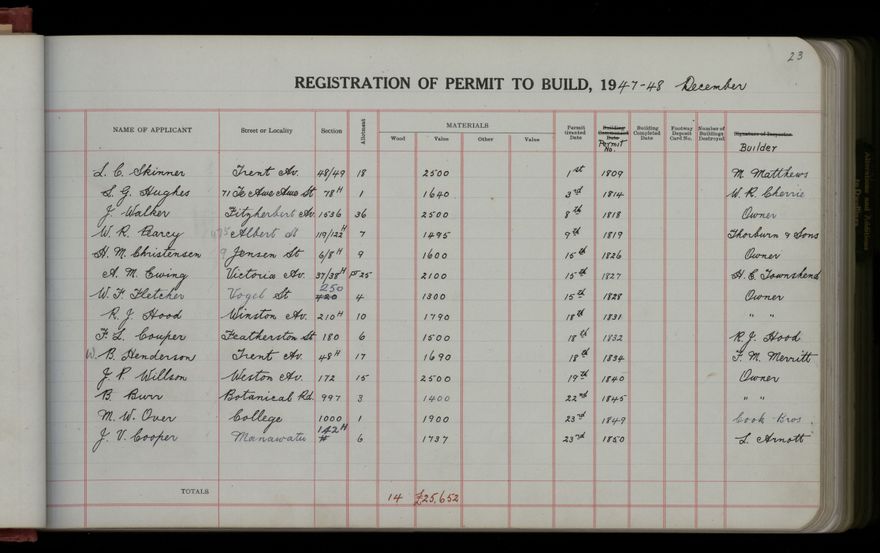 23
REGISTRATION OF PERMIT TO BUILD, 1947-48 December
NAME OF APPLICANT Street or Locality Section Allotment MATERIALS Wood Value Other Value Permit Granted Date Building Commenced Date Permit No. Building Completed Date Footway Deposit Card No. Number of Buildings Destroyed Signature of Inspector Builder
L. C. Skinner Trent Av. 48/49 18 2500 1st 1809 M. Matthews
S. G. Hughes 71 Te Awe Awe St 78H 1 1640 3rd 1814 W. R. Cherrie
J. Walker Fitzherbert Av. 1536 36 2500 8th 1818 Owner
W. R. Barcy 475 Albert St 119/122H 7 1495 9th 1819 Thorburn & Sons
H. M. Christensen 9 Jensen St 6/8H 9 1600 15th 1826 Owner
A. M. Ewing Victoria Av. 37/38H pt 25 2100 15th 1827 H. E. Townshend
W. F. Fletcher Vogel St 420 250 4 1300 15th 1828 Owner
R. J. Hood Winston Av. 210H 10 1790 18th 1831 " "
F. L. Couper Featherston St 180 6 1500 18th 1832 R. J. Hood
W. B. Henderson Trent Av. 48H 17 1690 18th 1834 F. M. Merritt
J. P. Willson Weston Av. 172 15 2500 19th 1840 Owner
B. Burr Botanical Rd. 997 3 1400 22nd 1845 " "
M. W. Over College 1000 1 1900 23rd 1849 Cook Bros
J. V. Cooper Manawatu 142H 6 1737 23rd 1850 L. Arnott
TOTALS 14 £25,652